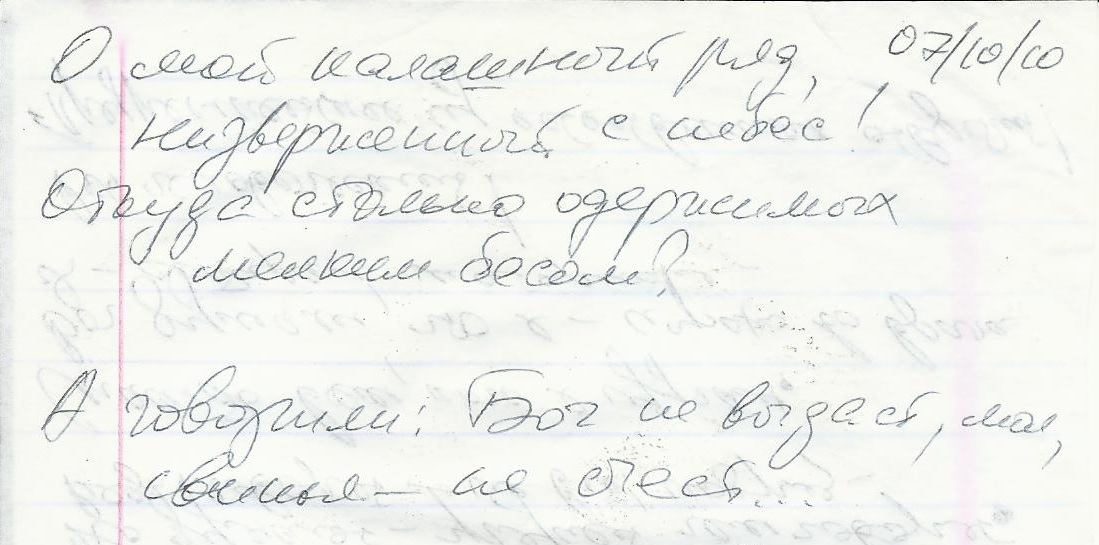 О мой калашный ряд, 07/10/10
низверженный с небес!
Откуда столько одержимых
мелким бесом?
А говорили: Бог не выдаст, мол,
свинья – не съест...